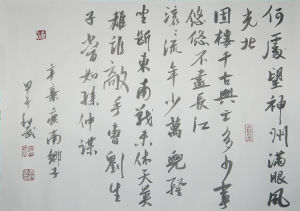 何處望神州滿眼風
光北
固樓千古興亡多少事
悠悠不盡長江
滾滾流年少萬兜鍪
坐斷東南戰未休天英
雄誰敵手曹劉生
子當如孫仲謀
辛棄疾南鄉子
甲午